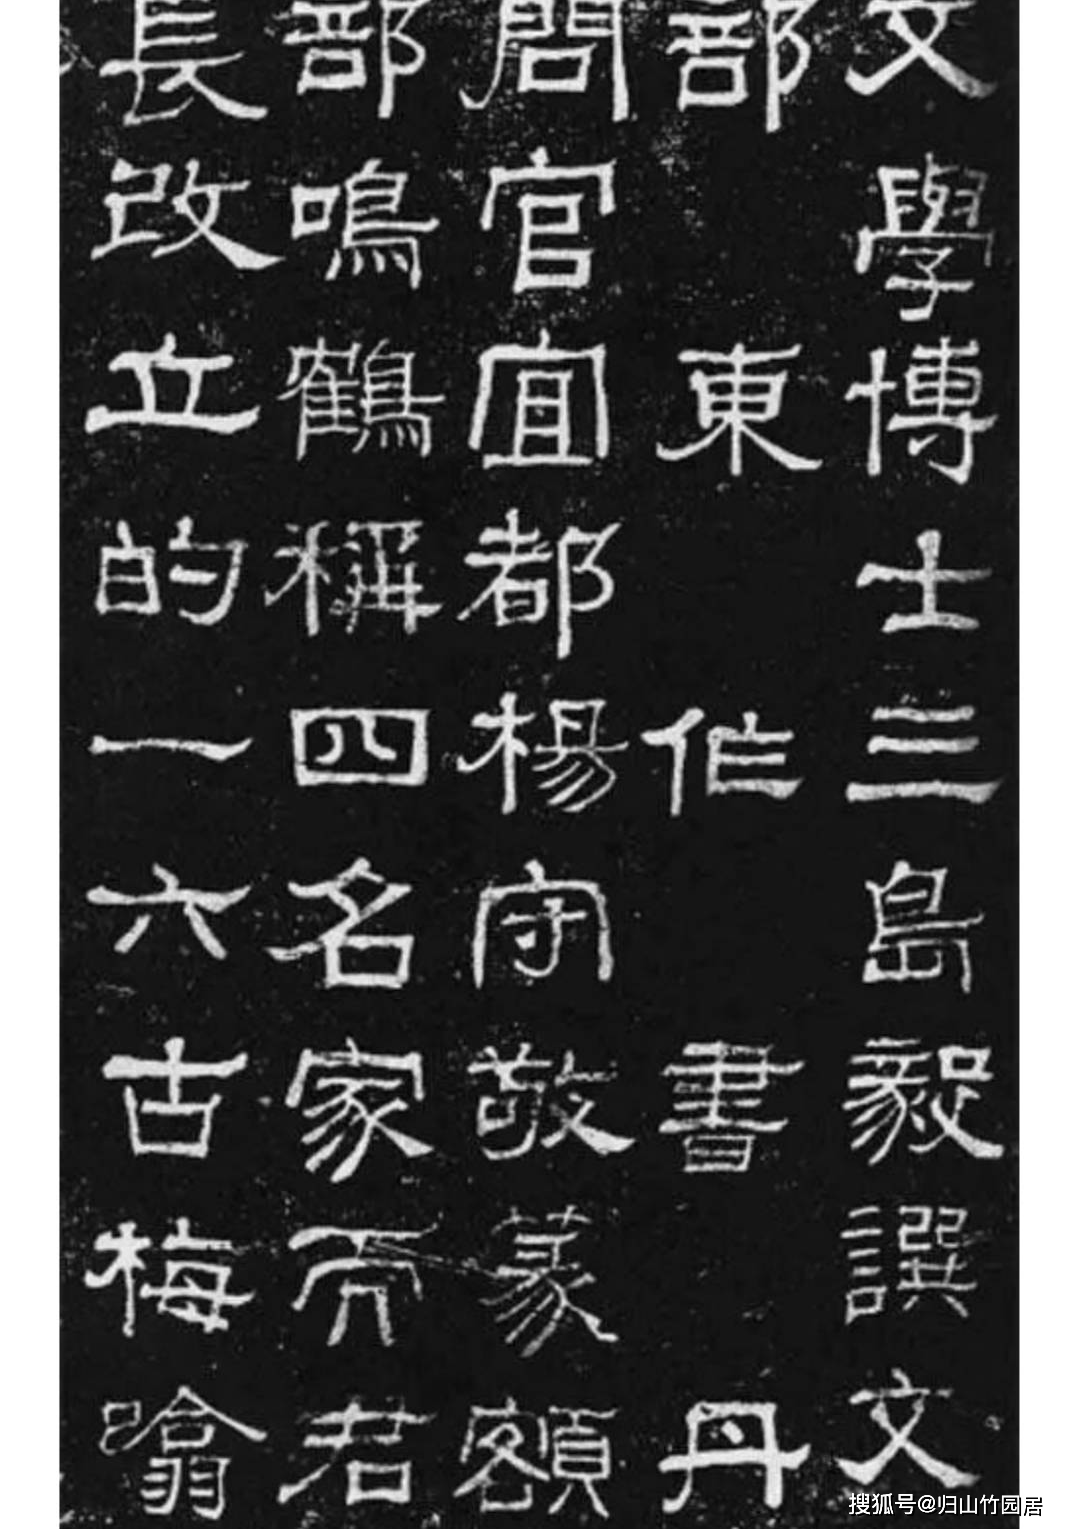 文學博士三島毅譔文
部東作書丹
問官宜都楊守敬篆額
部鳴鶴稱四名家而君
長改立的一六古梅
搜狐号@归山竹园居